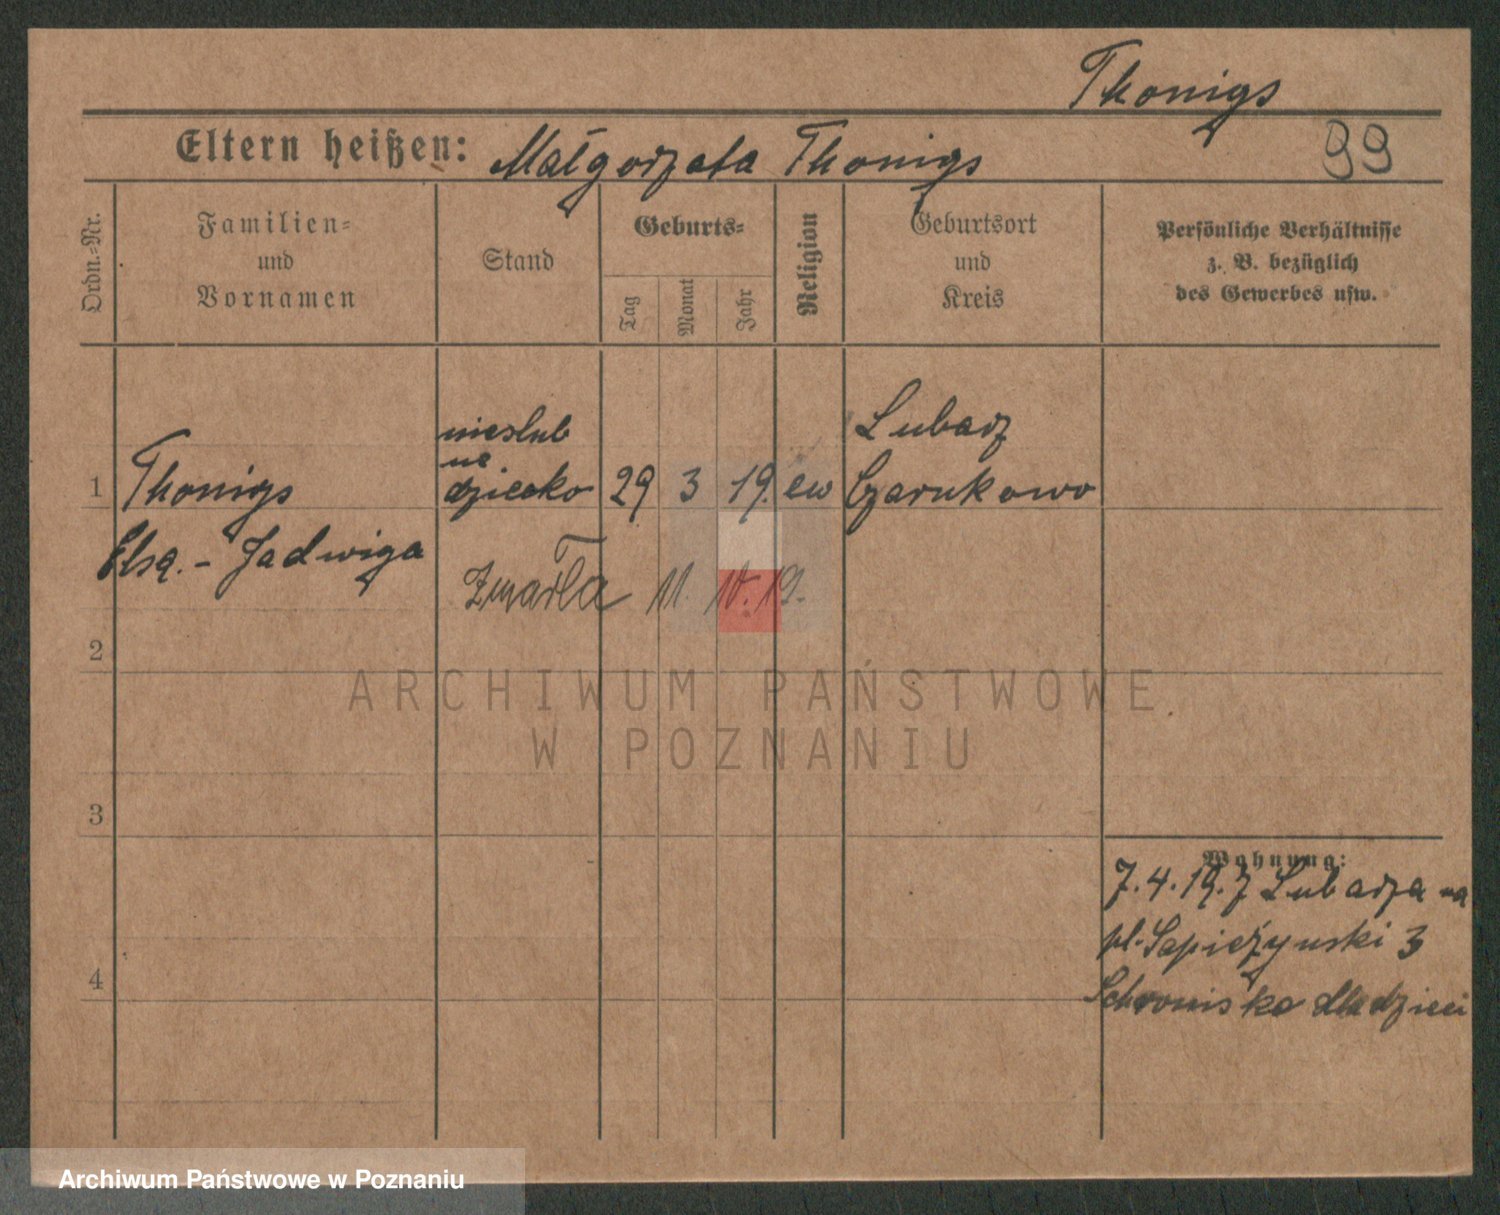 Thonigs
Eltern heißen: Małgorzata Thonigs
99
Ordn.-Nr.
Familien-
und
Vornamen
Stand
Geburts-
Tag
Monat
Jahr
Religion
Geburtsort
und
Kreis
Persönliche Verhältnisse
z. B. bezüglich
des Gewerbes usw.
1
Thonigs
Elsa.- Jadwiga
nieslub
ne
dziecko
29 3 19. ew
Lubasz
Czarnkowo
Zmarła 11. 10. 19.
2
3
4
Wohnung:
7.4.19. z Lubasza na
pl. Sapieżynski 3
Schroniska dla dzieci
ARCHIWUM PAŃSTWOWE
W POZNANIU
Archiwum Państwowe w Poznaniu